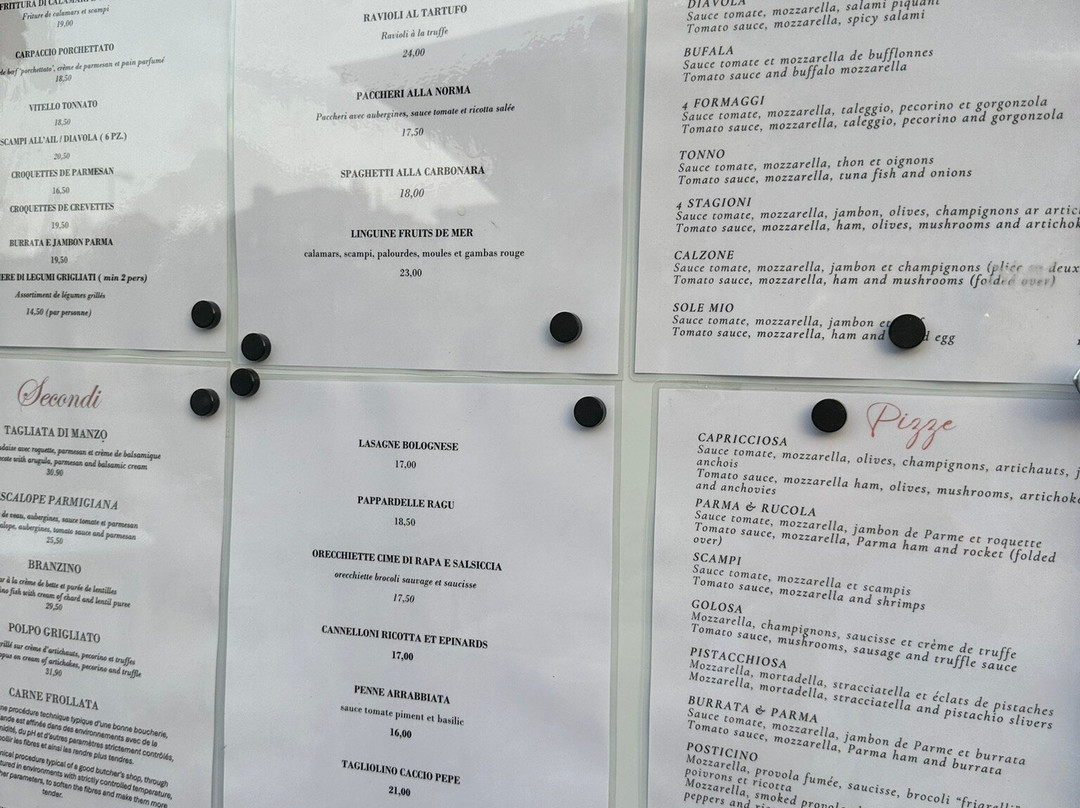 FRITTURA DI CALAMARI
Friture de calamars et scampi
19,00
CARPACCIO PORCHETTATO
de bœf "porchettato", crème de parmesan et pain parfumé
18,50
VITELLO TONNATO
18,50
SCAMPI ALL'AIL / DIAVOLA ( 6 PZ.)
20,50
CROQUETTES DE PARMESAN
16,50
CROQUETTES DE CREVETTES
19,50
BURRATA E JAMBON PARMA
19,50
DI LEGUMI GRIGLIATI ( min 2 pers)
Assortiment de légumes grillés
14,50 (par personne)
RAVIOLI AL TARTUFO
Ravioli à la truffe
24,00
PACCHERI ALLA NORMA
Paccheri avec aubergines, sauce tomate et ricotta salée
17,50
SPAGHETTI ALLA CARBONARA
18,00
LINGUINE FRUITS DE MER
calamars, scampi, palourdes, moules et gambas rouge
23,00
DIAVOLA
Sauce tomate, mozzarella, salami piquant
Tomato sauce, mozzarella, spicy salami
BUFALA
Sauce tomate et mozzarella de bufflonnes
Tomato sauce and buffalo mozzarella
4 FORMAGGI
Sauce tomate, mozzarella, taleggio, pecorino et gorgonzola
Tomato sauce, mozzarella, taleggio, pecorino and gorgonzola
TONNO
Sauce tomate, mozzarella, thon et oignons
Tomato sauce, mozzarella, tuna fish and onions
4 STAGIONI
Sauce tomate, mozzarella, jambon, olives, champignons ar
Tomato sauce, mozzarella, ham, olives, mushrooms and
CALZONE
Sauce tomate, mozzarella, jambon et champignons (pliée en deux
Tomato sauce, mozzarella, ham and mushrooms (folded over)
SOLE MIO
Sauce tomate, mozzarella, jambon et
Tomato sauce, mozzarella, ham and egg
Secondi
TAGLIATA DI MANZO
avec roquette, parmesan et crème de balsamique
with arugula, parmesan and balsamic cream
30,90
SCALOPE PARMIGIANA
de veau, aubergines, sauce tomate et parmesan
aubergines, tomato sauce and parmesan
25,50
BRANZINO
à la crème de bette et purée de lentilles
fish with cream of chard and lentil puree
29,50
POLPO GRIGLIATO
sur crème d'artichauts, pecorino et truffes
on cream of artichokes, pecorino and truffle
31,90
CARNE FROLLATA
procédure technique typique d'une bonne boucherie,
est affinée dans des environnements avec de la
du pH et d'autres paramètres strictement contrôlés,
les fibres et ainsi les rendre plus tendres.
procedure typical of a good butcher's shop, through
in environments with strictly controlled temperature,
parameters, to soften the fibres and make them more
tender.
LASAGNE BOLOGNESE
17,00
PAPPARDELLE RAGU
18,50
ORECCHIETTE CIME DI RAPA E SALSICCIA
orecchiette brocoli sauvage et saucisse
17,50
CANNELLONI RICOTTA ET EPINARDS
17,00
PENNE ARRABBIATA
sauce tomate piment et basilic
16,00
TAGLIOLINO CACCIO PEPE
21,00
Pizze
CAPRICCIOSA
Sauce tomate, mozzarella, olives, champignons, artichauts,
anchois
Tomato sauce, mozzarella ham, olives, mushrooms,
and anchovies
PARMA & RUCOLA
Sauce tomate, mozzarella, jambon de Parme et roquette
Tomato sauce, mozzarella, Parma ham and rocket (folded
over)
SCAMPI
Sauce tomate, mozzarella et scampis
Tomato sauce, mozzarella and shrimps
GOLOSA
Mozzarella, champignons, saucisse et crème de truffe
Tomato sauce, mushrooms, sausage and truffle sauce
PISTACCHIOSA
Mozzarella, mortadella, stracciatella et éclats de pistaches
Mozzarella, mortadella, stracciatella and pistachio slivers
BURRATA & PARMA
Sauce tomate, mozzarella, jambon de Parme et burrata
Tomato sauce, mozzarella, Parma ham and burrata
POSTICINO
Mozzarella, provola fumée, saucisse, brocoli
poivrons et ricotta
Mozzarella, smoked
peppers and